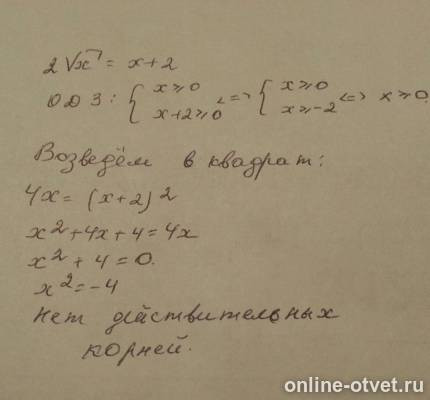 2√x = x+2
ОДЗ: { x ≥ 0 x+2 ≥ 0 <=> { x ≥ 0 x ≥ -2 <=> x ≥ 0
Возведём в квадрат:
4x = (x+2)²
x²+4x+4=4x
x²+4=0.
x²=-4
Нет действительных
корней.
online-otvet.ru